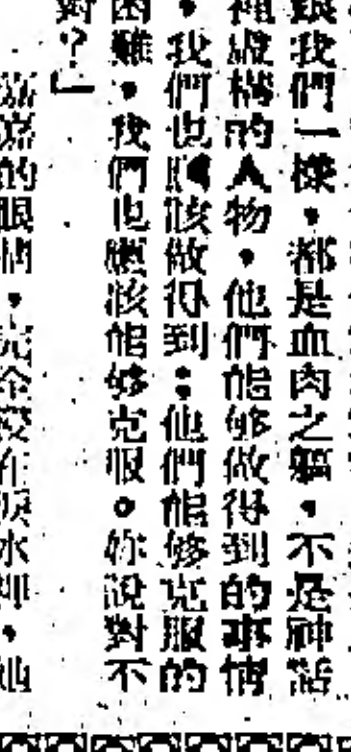 跟我們一樣，都是血肉之軀，不是神話
裡虛構的人物，他們能够做得到的事情
，我們也應該做得到；他們能够克服的
困難，我們也應該能够克服。妳說對不
對？」
的眼睛，完全浸在淚水裡，她